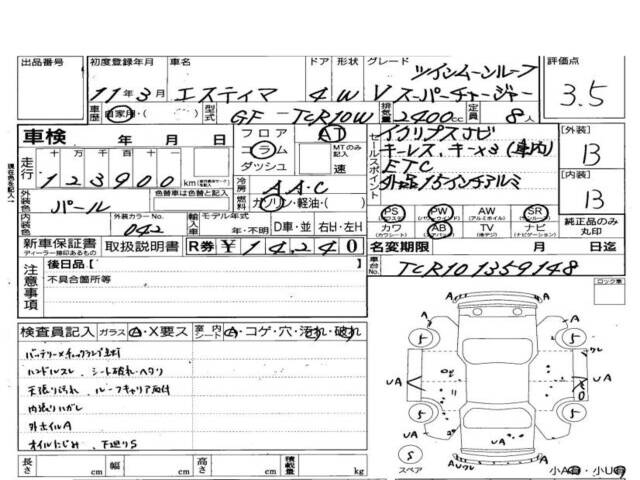 出品番号 初度登録年月 車名 ドア 形状 グレード 評価点
11年3月 エスティマ 4 W V ツインムーンルーフ
スーパーチャージャー
3.5
車歴 自家用・( ) 型式 GF-TCR10W 排気量 2400cc 定員 8人
車検 年 月 日
フロア コラム ダッシュ AT MTのみ記入 速
セールスポイント
イクリプスナビ
キーレス、キー×3(車内)
ETC
外品15インチアルミ
[外装] B
[内装] B
走行 十 万 千 百 十
123900 km
冷房 AAC
外装色 パール 色替車は色替と記入
燃料 ガソリン・軽油・( )
内装色 外装カラーNo. 042 輸入車 モデル年式 年・不明 D車・並 右H・左H
PS PW AW SR
カワ AB TV ナビ
純正品のみ丸印
新車保証書 取扱説明書 R券 ¥14,240
ディーラー捺印あるもの
名変期限 月 日迄
注意事項 後日品【
不具合箇所等
車台No. TCR101359148
ロック車
検査員記入 ガラス A・X要ス 室内シート A・コゲ・穴・汚れ・破れ
バッテリー×チェックランプ点灯
ハンドルスレ、シート破れ・ヘタリ
天張り汚れ、ルーフキャリア取付
内張りハガレ
外ホイルA
オイルにじみ、下廻りS
5 5
UA UA
5 5
S
スペア
長さ cm 幅 cm 高さ cm 積載量 kg